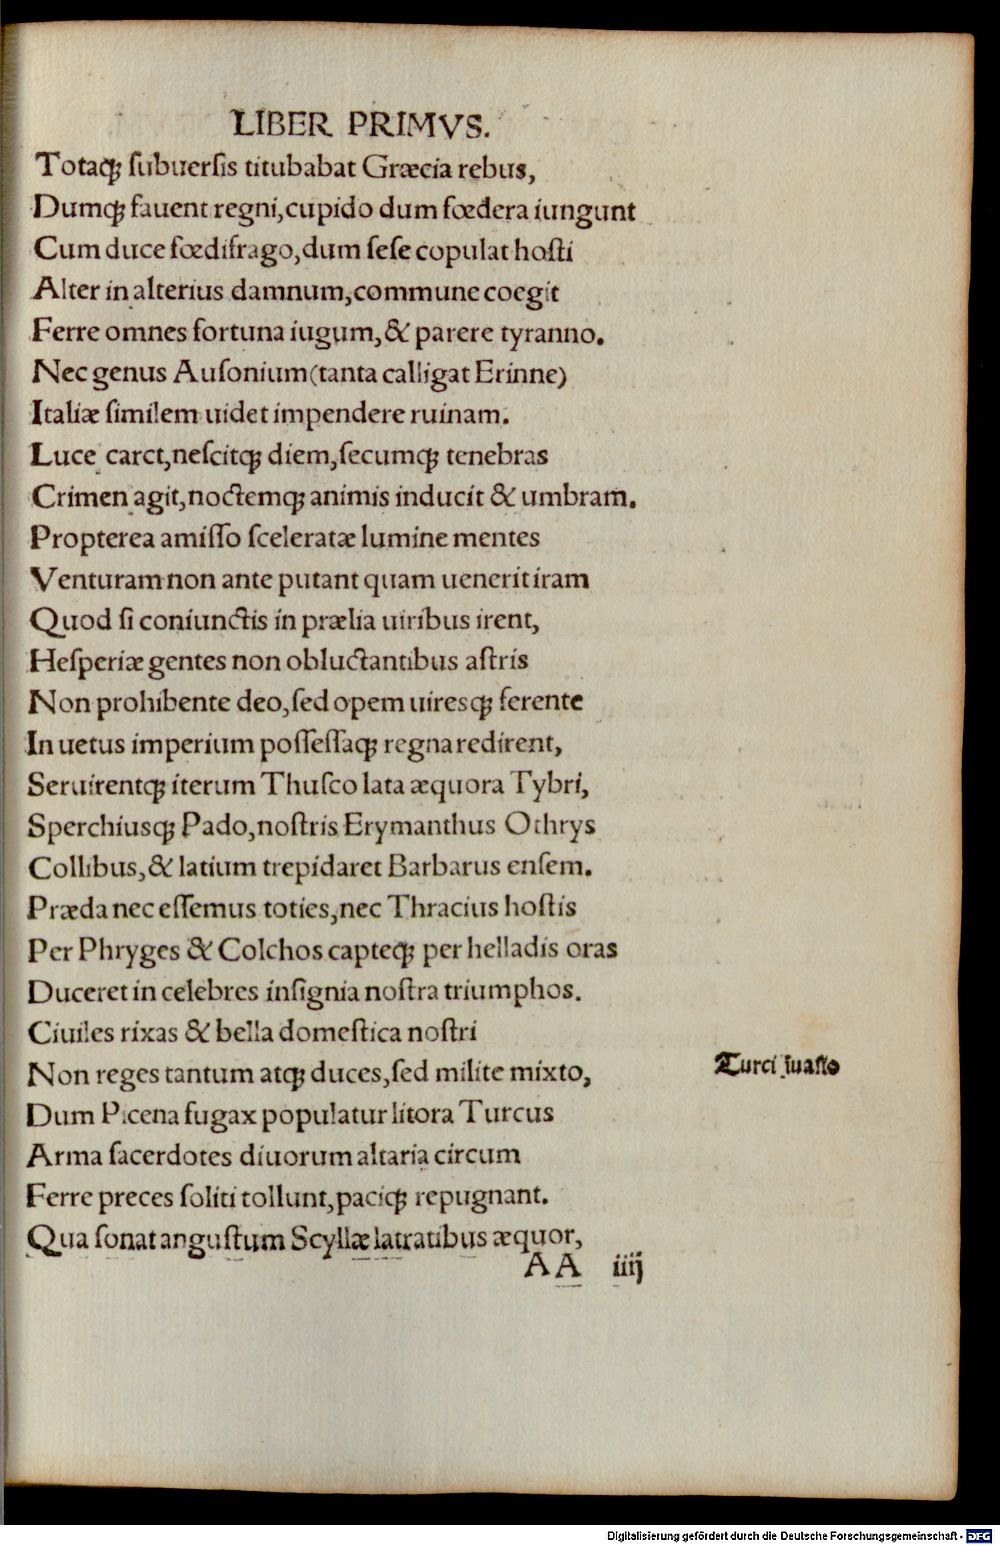 LIBER PRIMVS.
Totaqꝫ ſubuerſis titubabat Græcia rebus,
Dumqꝫ fauent regni, cupido dum fœdera iungunt
Cum duce fœdifrago, dum ſeſe copulat hoſti
Alter in alterius damnum, commune coegit
Ferre omnes fortuna iugum, & parere tyranno.
Nec genus Auſonium (tanta calligat Erinne)
Italiæ ſimilem uidet impendere ruinam.
Luce caret, neſcitqꝫ diem, ſecumqꝫ tenebras
Crimen agit, noctemqꝫ animis inducit & umbram.
Propterea amiſſo ſceleratæ lumine mentes
Venturam non ante putant quam uenerit iram
Quod ſi coniunctis in prælia uiribus irent,
Heſperiæ gentes non obluctantibus aſtris
Non prohibente deo, ſed opem uiresqꝫ ferente
In uetus imperium poſſeſſaqꝫ regna redirent,
Seruirentqꝫ iterum Thuſco lata æquora Tybri,
Sperchiusqꝫ Pado, noſtris Erymanthus Othrys
Collibus, & latium trepidaret Barbarus enſem.
Præda nec eſſemus toties, nec Thracius hoſtis
Per Phryges & Colchos capteqꝫ per helladis oras
Duceret in celebres inſignia noſtra triumphos.
Ciuiles rixas & bella domeſtica noſtri
Non reges tantum atqꝫ duces, ſed milite mixto,
Turci ꝫuaſio
Dum Picena fugax populatur litora Turcus
Arma ſacerdotes diuorum altaria circum
Ferre preces ſoliti tollunt, paciqꝫ repugnant.
Qua ſonat anguſtum Scyllæ latratibus æquor,
AA iiij
Digitalisierung gefördert durch die Deutsche Forschungsgemeinschaft - DFG